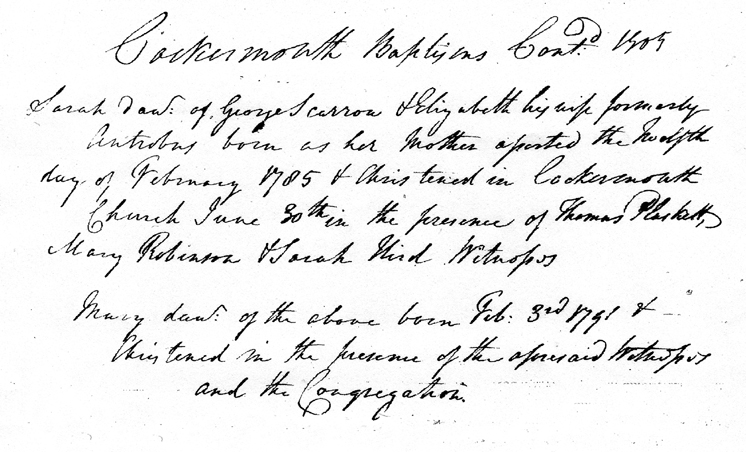 Cockermouth Baptisms Contd. 1785
Sarah Dawr. of George Scarrow & Elizabeth his wife formerly
Antrobus born as her Mother asserted the twelfth
day of February 1785 & Christened in Cockersmouth
Church June 30th in the presence of Thomas Plaskett,
Mary Robinson & Sarah Hird Witnesses
Mary dawr. of the above born Feb: 3rd 1791 &
Christened in the presence of the aforesaid Witnesses
and the Congregation.